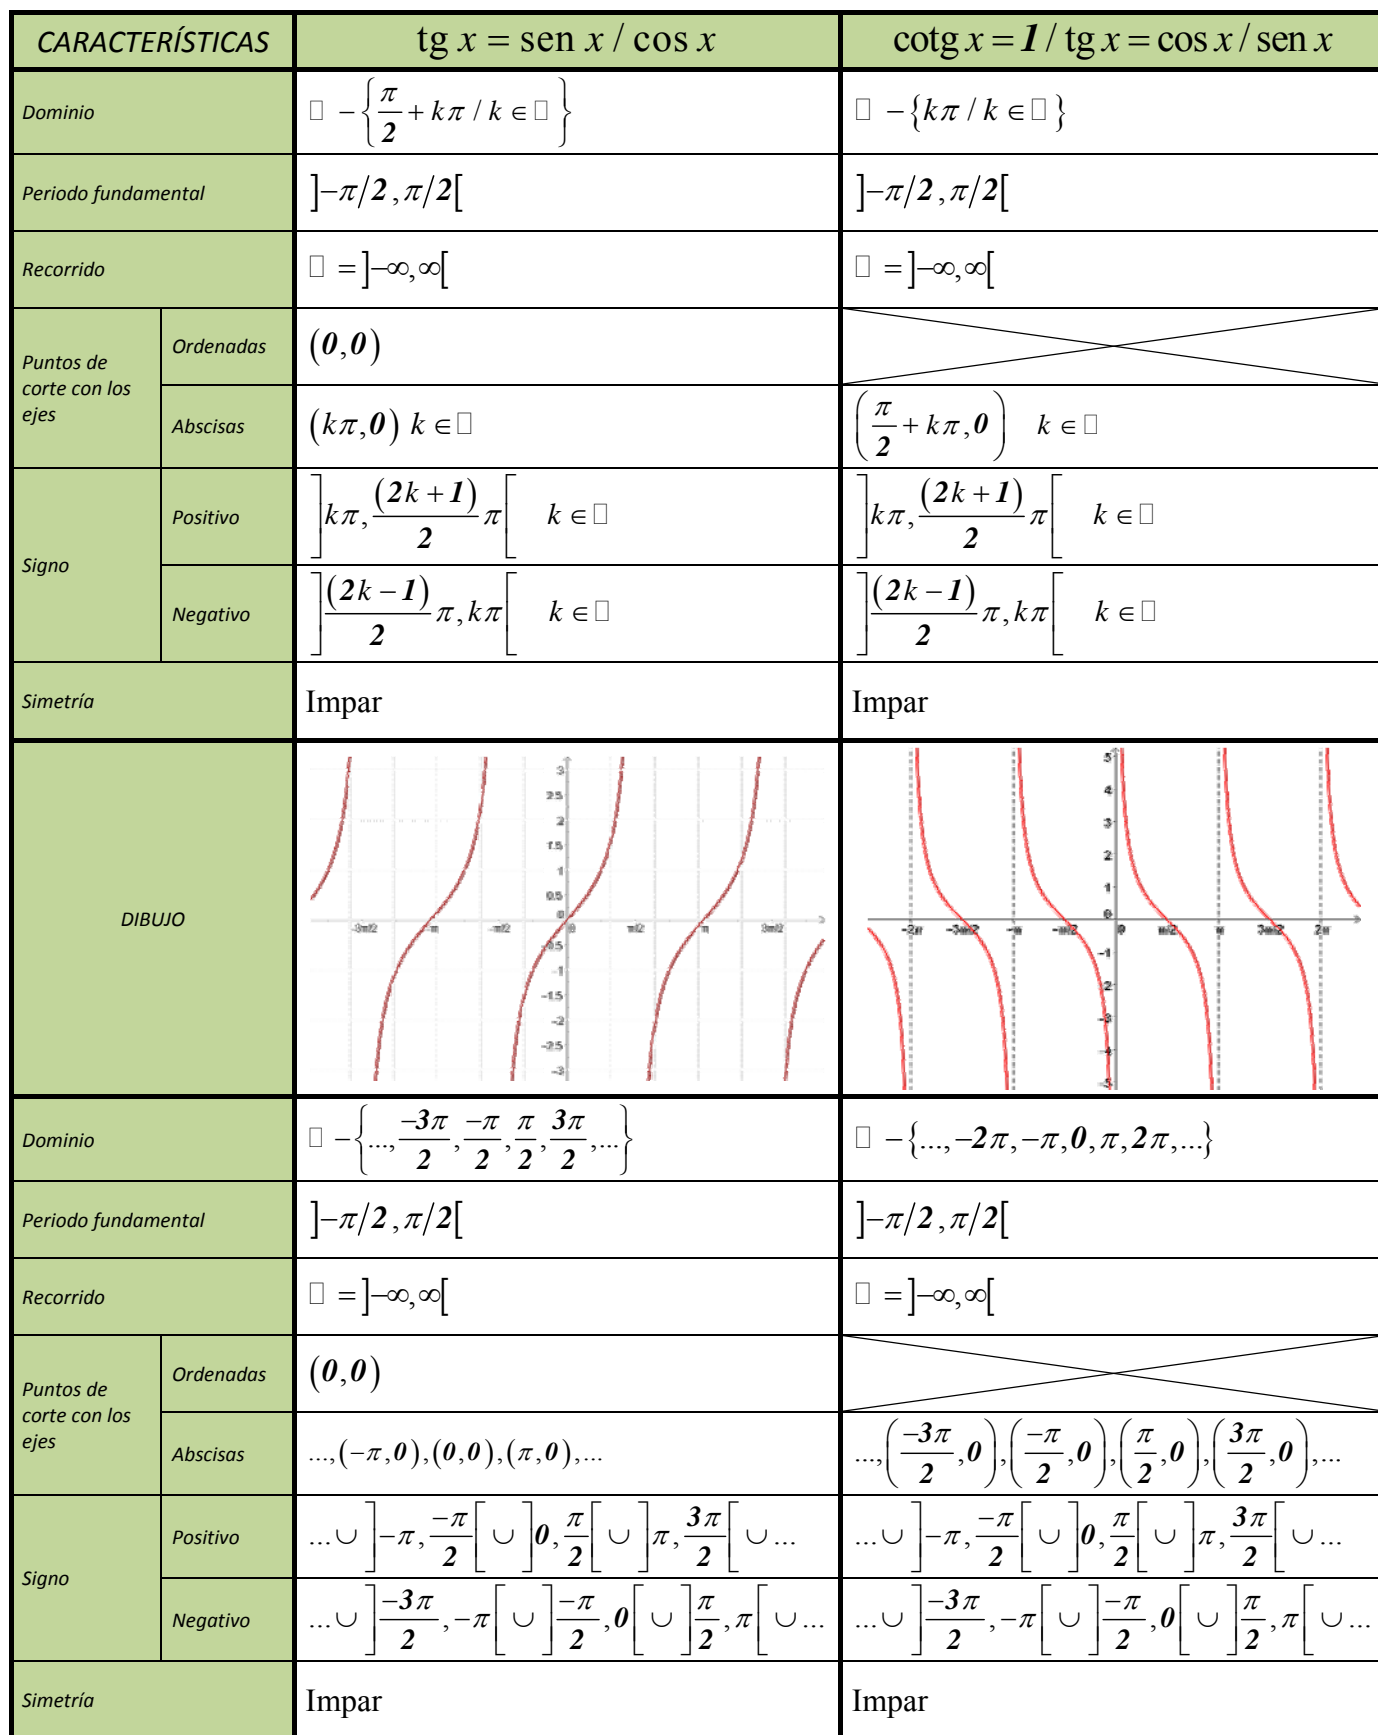 CARACTERÍSTICAS tg x = sen x / cos x cotg x = 1 / tg x = cos x / sen x
Dominio □ − {π/2 + kπ / k ∈ □ } □ − {kπ / k ∈ □ }
Periodo fundamental ]−π/2 , π/2[ ]−π/2 , π/2[
Recorrido □ = ]−∞, ∞[ □ = ]−∞, ∞[
Puntos de
corte con los
ejes
Ordenadas (0,0)
Abscisas (kπ,0) k ∈ □ (π/2 + kπ, 0) k ∈ □
Signo
Positivo ]kπ, (2k+1)/2 π[ k ∈ □ ]kπ, (2k+1)/2 π[ k ∈ □
Negativo ](2k−1)/2 π, kπ[ k ∈ □ ](2k−1)/2 π, kπ[ k ∈ □
Simetría Impar Impar
DIBUJO
3
2.5
2
1.5
1
0.5
0
-0.5
-1
-1.5
-2
-2.5
-3
-3π/2 -π -π/2 0 π/2 π 3π/2
5
4
3
2
1
0
-1
-2
-3
-4
-5
-2π -3π/2 -π -π/2 0 π/2 π 3π/2 2π
Dominio □ − {..., −3π/2, −π/2, π/2, 3π/2, ...} □ − {..., −2π, −π, 0, π, 2π, ...}
Periodo fundamental ]−π/2 , π/2[ ]−π/2 , π/2[
Recorrido □ = ]−∞, ∞[ □ = ]−∞, ∞[
Puntos de
corte con los
ejes
Ordenadas (0,0)
Abscisas ..., (−π,0), (0,0), (π,0), ... ..., (−3π/2, 0), (−π/2, 0), (π/2, 0), (3π/2, 0), ...
Signo
Positivo ... ∪ ]−π, −π/2[ ∪ ]0, π/2[ ∪ ]π, 3π/2[ ∪ ... ... ∪ ]−π, −π/2[ ∪ ]0, π/2[ ∪ ]π, 3π/2[ ∪ ...
Negativo ... ∪ ]−3π/2, −π[ ∪ ]−π/2, 0[ ∪ ]π/2, π[ ∪ ... ... ∪ ]−3π/2, −π[ ∪ ]−π/2, 0[ ∪ ]π/2, π[ ∪ ...
Simetría Impar Impar